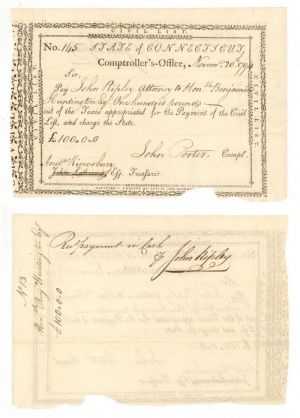 CIVIL LIST.
No. 145 STATE of CONNECTICUT,
Comptroller's-Office, Novemr. 20 1794
Sir,
Pay John Ripley Attorney to Honble Benjamin
Huntington Esq One hundred pounds
out of the Taxes appropriated for the Payment of the Civil
List, and charge the State.
£100.0.0
John Porter, Compt.
Andw Kingsbury
John Lawrence, Esq. Treasurer.
Recd payment in Cash
John Ripley
No 13
Honble Benj Huntington Esq
£100.0.0